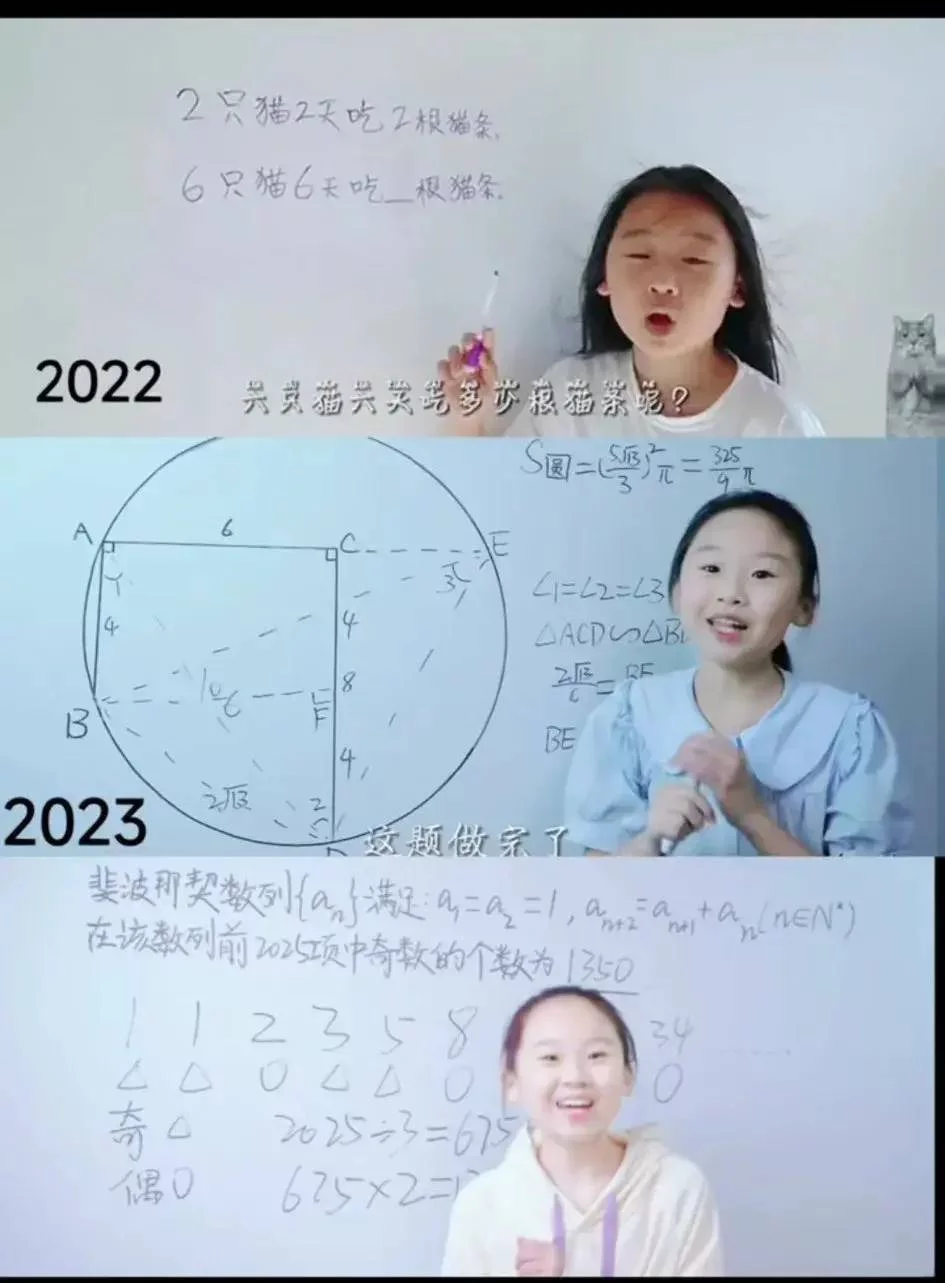 2只猫2天吃2根猫条.
6只猫6天吃__根猫条.
2022
六只猫六天吃多少根猫条呢?
S圆=(5√13/3)²π=325/9π
A
6
C
E
1
3
4
4
∠1=∠2=∠3
△ACD∽△B
8
B
F
BE
4
2√13
2
2023
D
这题做完了
斐波那契数列{aₙ}满足:a₁=a₂=1,aₙ₊₂=aₙ₊₁+aₙ(n∈N*)
在该数列前2025项中奇数的个数为1350
1 1 2 3 5 8 34 ......
△ △ O △ △ O O
奇△ 2025÷3=675
偶O 675×2=1